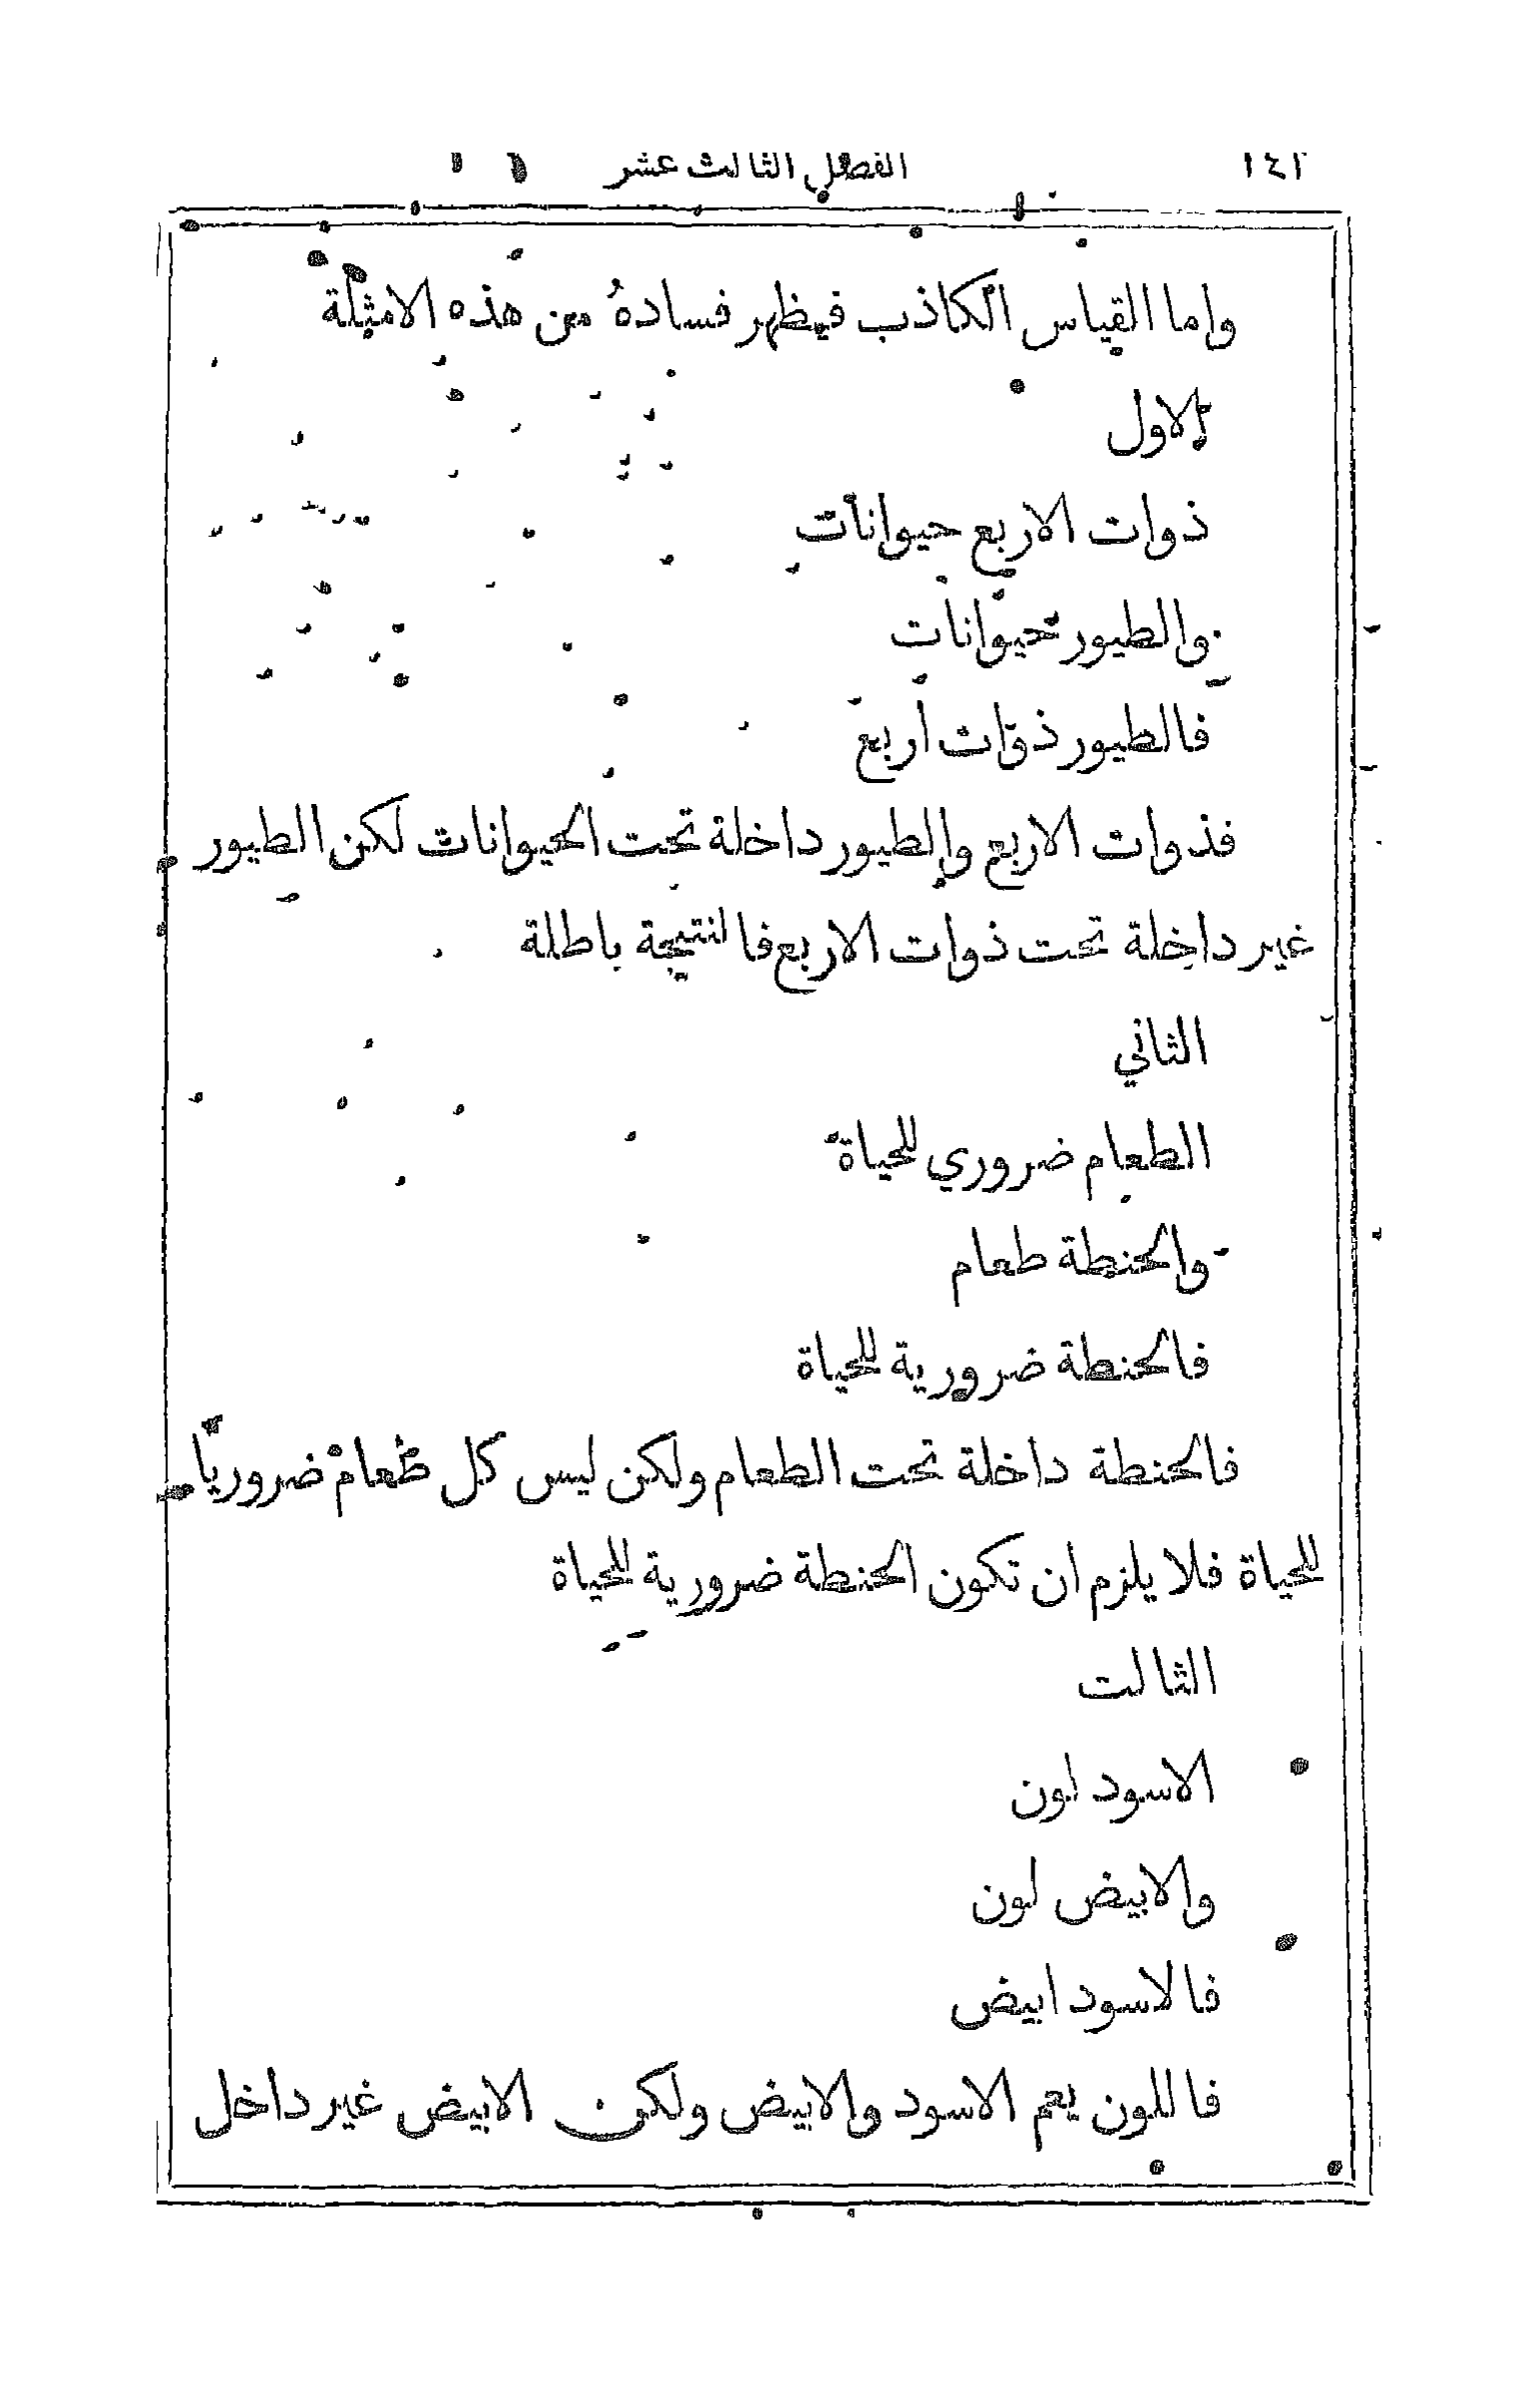 ١٤٢ الفصل الثالث عشر
واما القياس الكاذب فيظهر فسادهُ من هذه الامثلة
الاول
ذوات الاربع حيوانات
والطيور حيوانات
فالطيور ذوات اربع
فذوات الاربع والطيور داخلة تحت الحيوانات لكن الطيور
غير داخلة تحت ذوات الاربع فالنتيجة باطلة
الثاني
الطعام ضروري للحياة
والحنطة طعام
فالحنطة ضرورية للحياة
فالحنطة داخلة تحت الطعام ولكن ليس كل طعام ضروريًا
للحياة فلا يلزم ان تكون الحنطة ضرورية للحياة
الثالث
الاسود لون
والابيض لون
فالاسود ابيض
فاللون يعم الاسود والابيض ولكن الابيض غير داخل